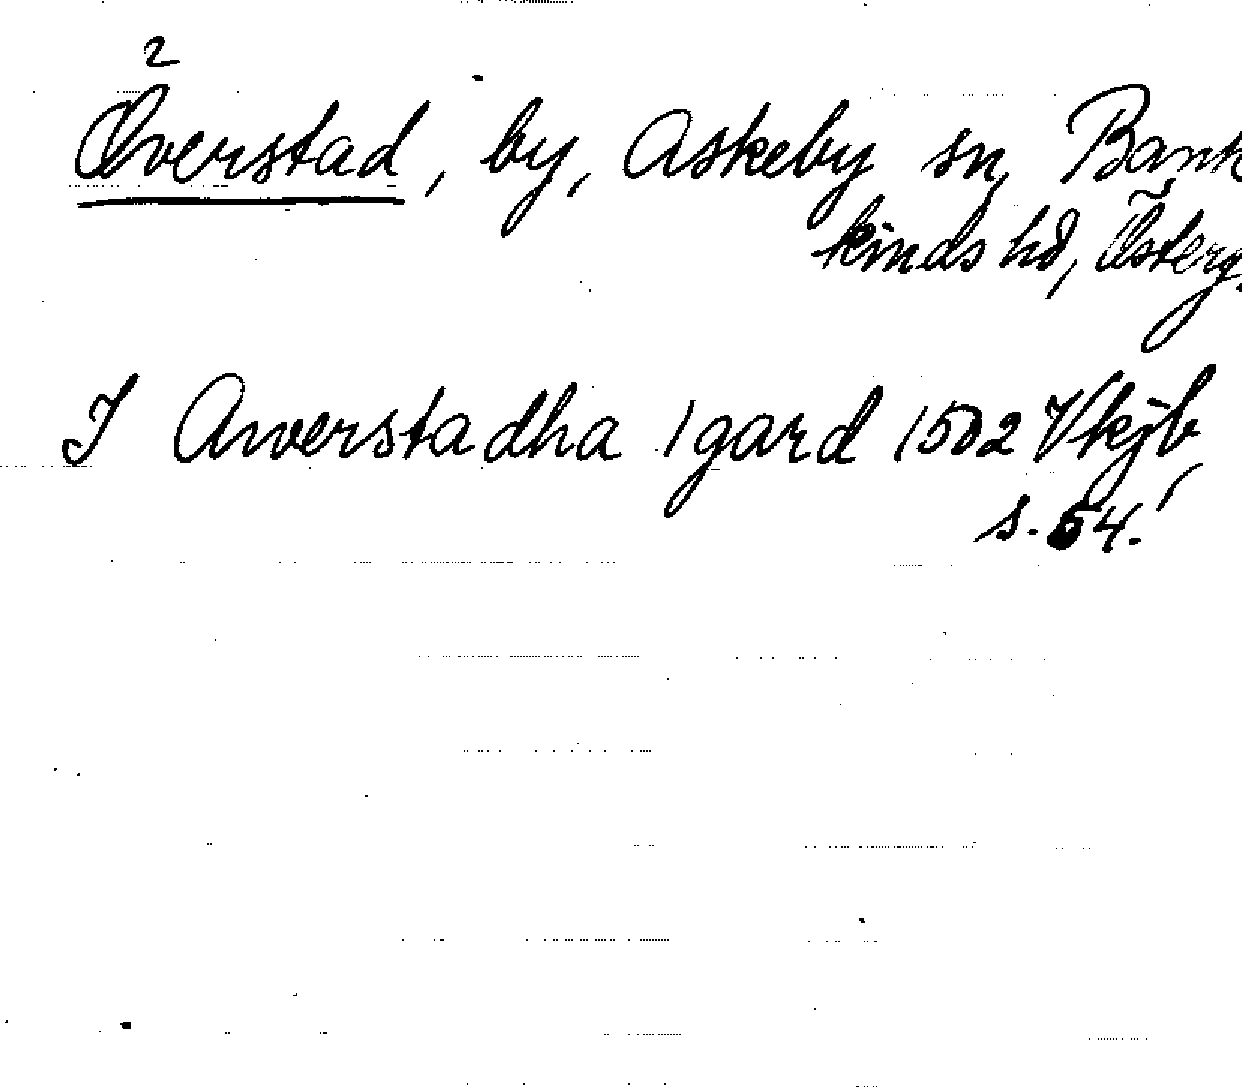 2
Överstad, by, Askeby sn, Bank
kinds hd, Österg.
I Awerstadha 1 gard 1502 Vkjb,
s. 54.